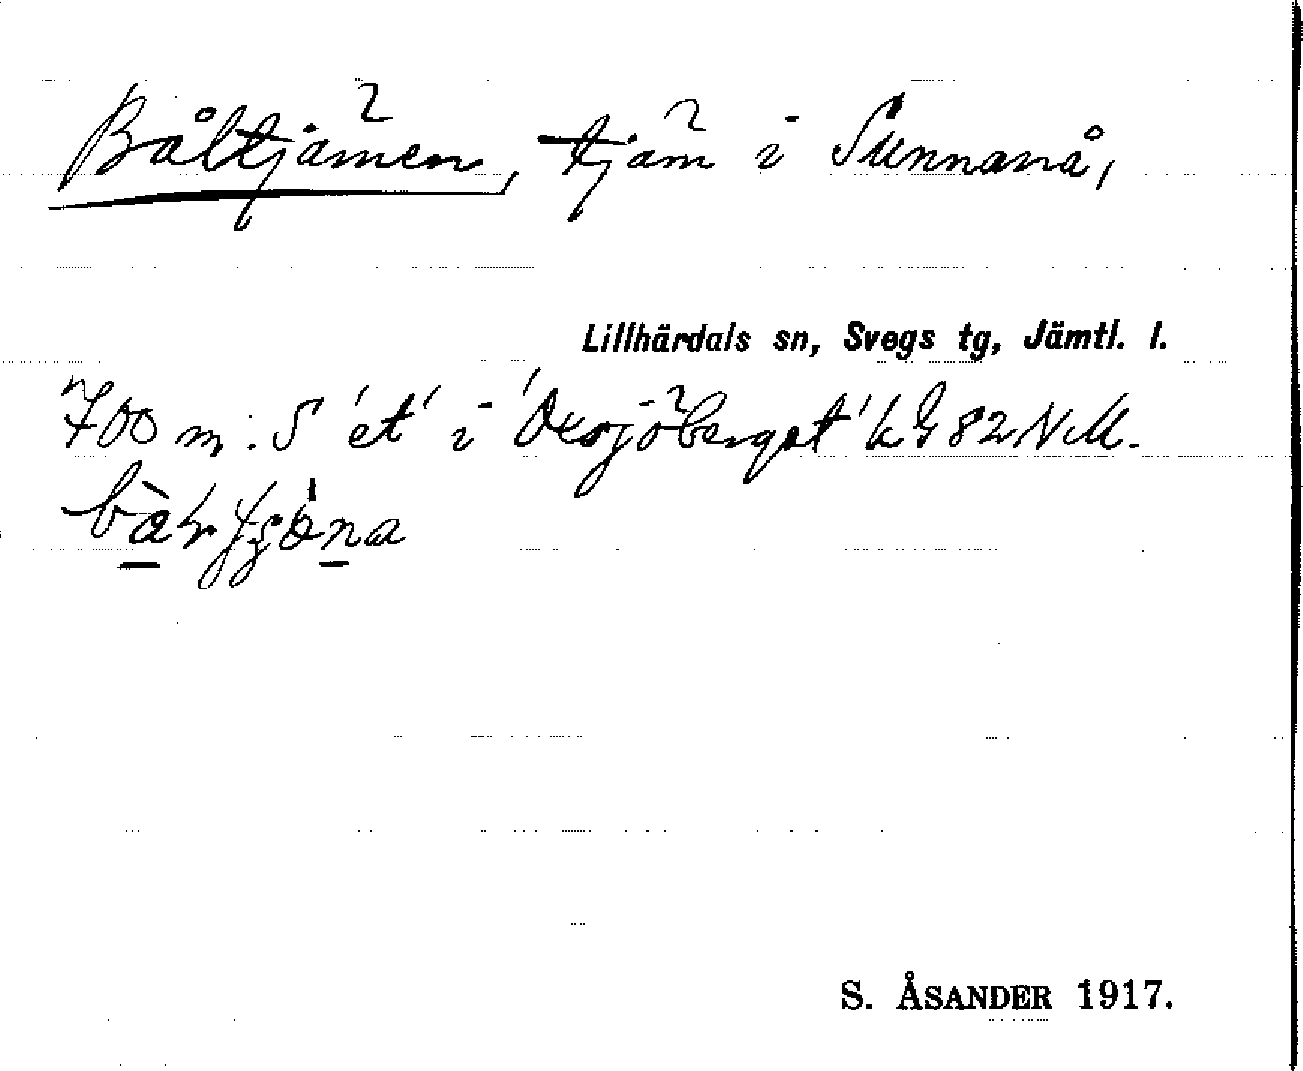 Båltjärnen, tjärn i Sunnanå,
Lillhärdals sn, Svegs tg, Jämtl. l.
700 m. S 'et' i 'Oxsjöberget' kG 82 NM.
S. ÅSANDER 1917.